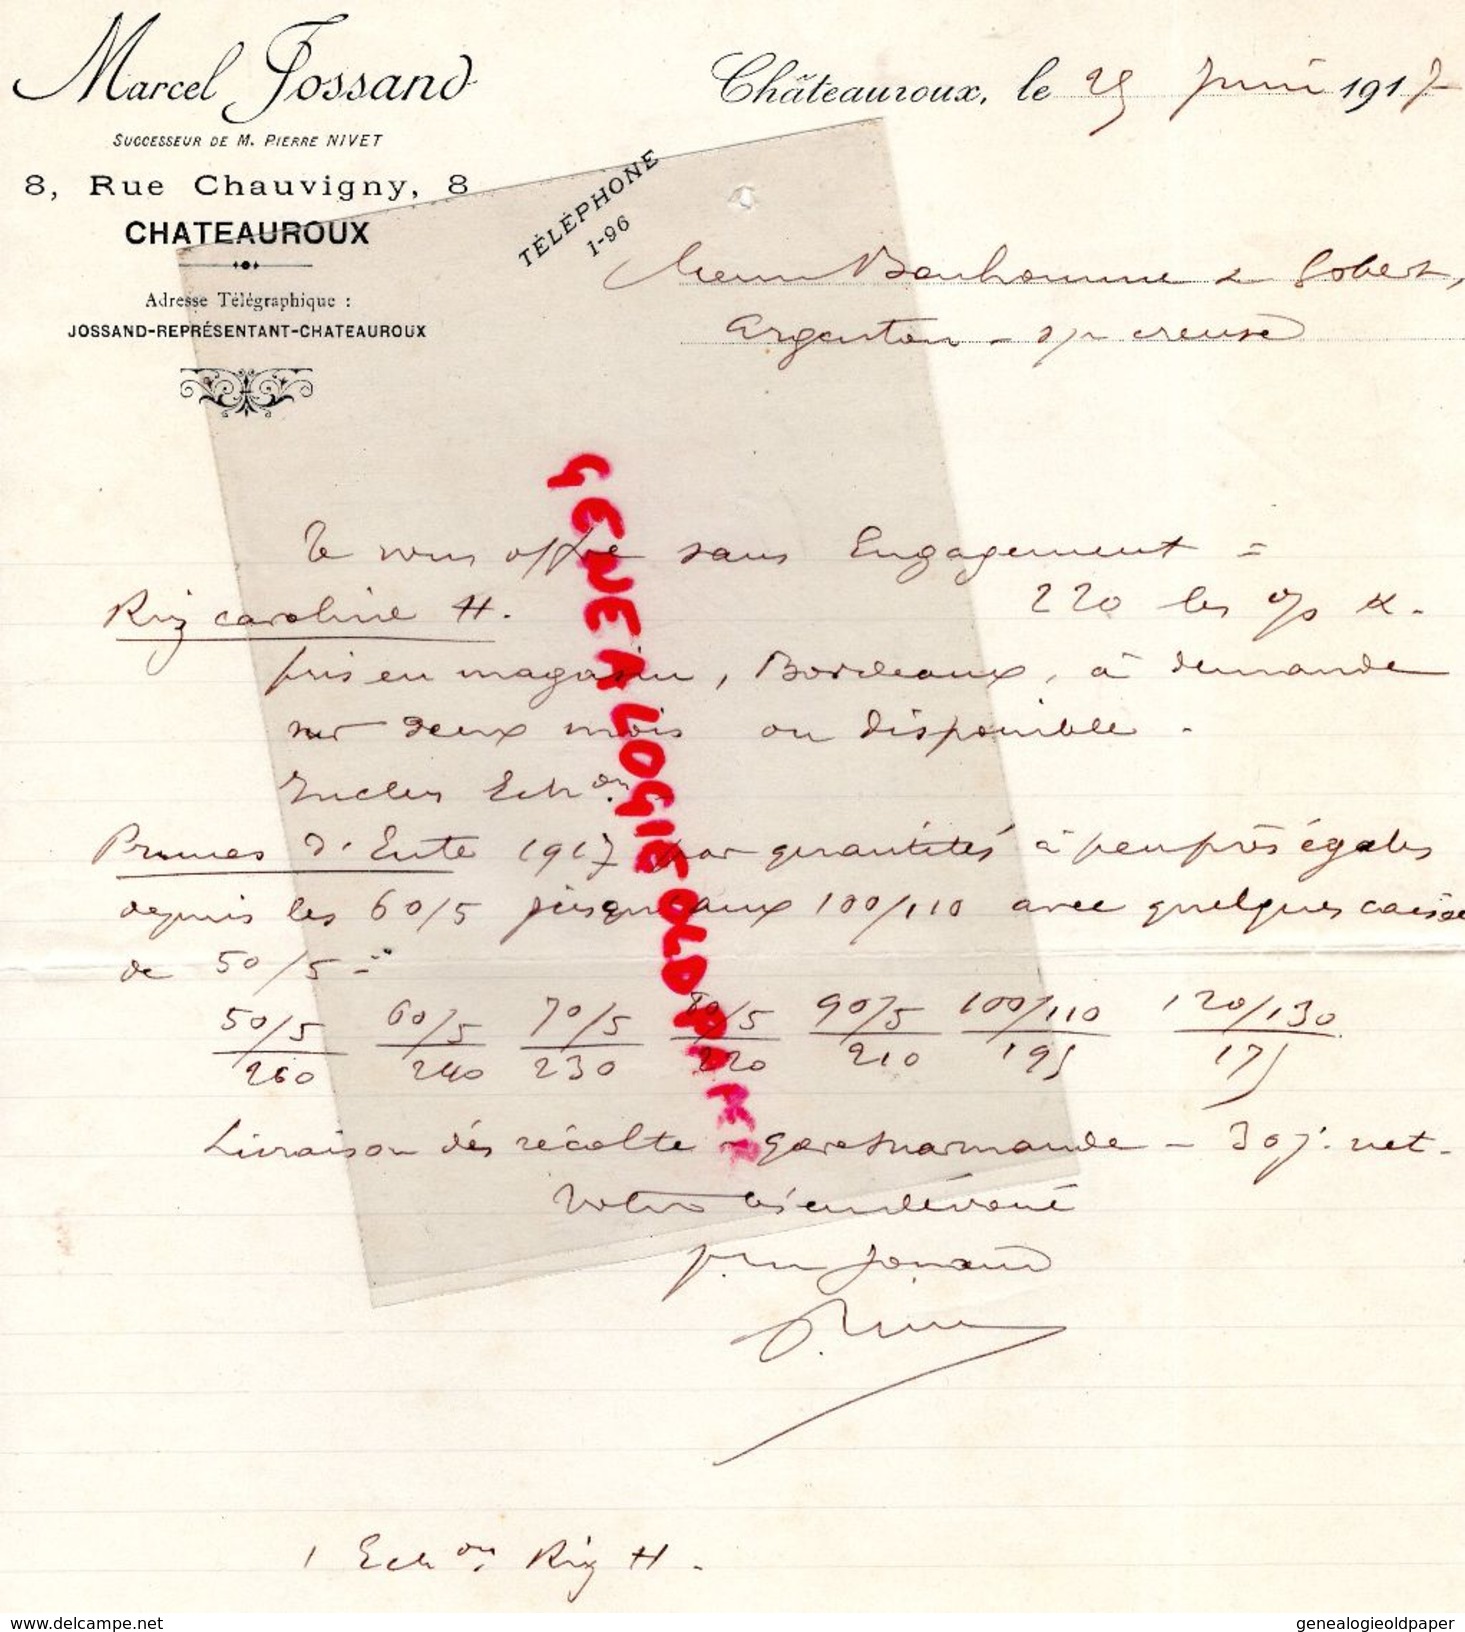 Marcel Jossand
SUCCESSEUR DE M. PIERRE NIVET
8, Rue Chauvigny, 8
CHATEAUROUX
Adresse Télégraphique :
JOSSAND-REPRÉSENTANT-CHATEAUROUX
TÉLÉPHONE
1-96
Châteauroux, le 25 Juin 1917
Bonhomme & Gobert,
Argenton - s/ creuse
Je vous offre sans Engagement =
Riz caroline H. 220 les % K.
pris en magasin, Bordeaux, à demande
sur deux mois ou disponible -
Inclus Ech on
Prunes d'Ente 1917 par quantités à peu près égales
depuis les 60/5 jusqu'aux 100/110 avec quelques caisses
de 50/5 =
50/5 60/5 70/5 80/5 90/5 100/110 120/130
260 240 230 220 210 195 175
Livraison dès récolte - gare Marmande - 30 j. net.
Votre bien dévoué
p. m Jossand
1 Ech on Riz H.
GENEALOGIEOLDPAPER
www.delcampe.net
genealogieoldpaper